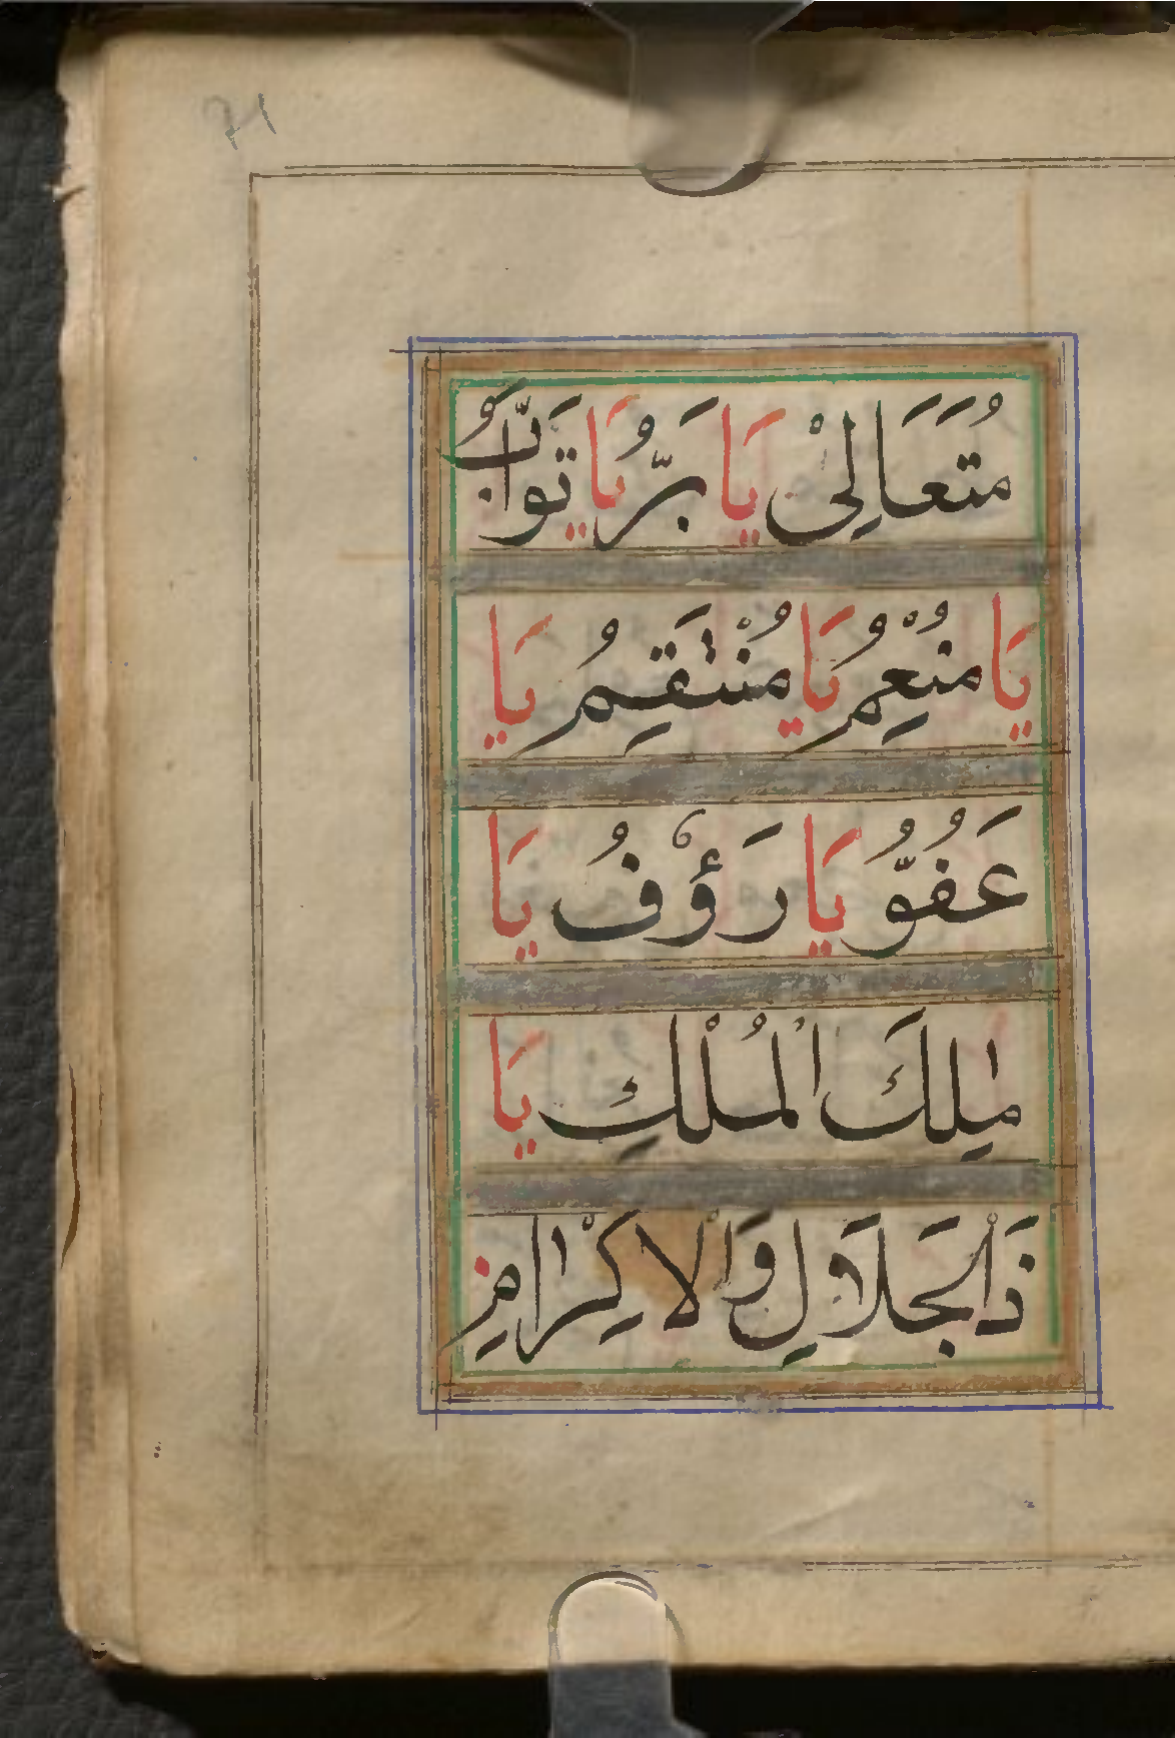 21
مُتَعَالِيْ يَا بَرُّ يَا تَوَّابُ
يَا مُنْعِمُ يَا مُنْتَقِيمُ يَا
عَفُوُّ يَا رَؤْفُ يَا
مٰلِكَ الْمُلْكِ يَا
ذَاْلجَلَاَلِ وَاْلاِكْرٰامِ